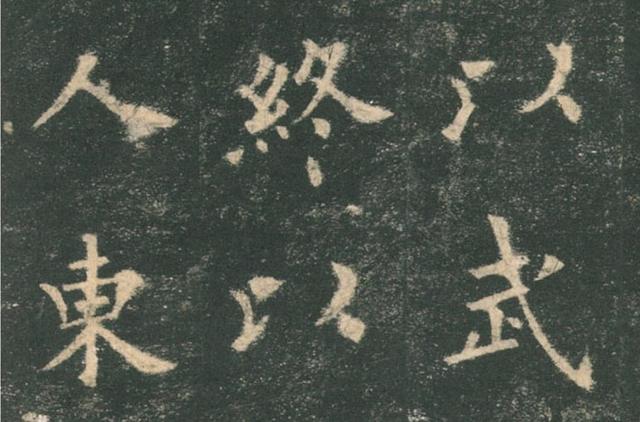 以武
終以
人東